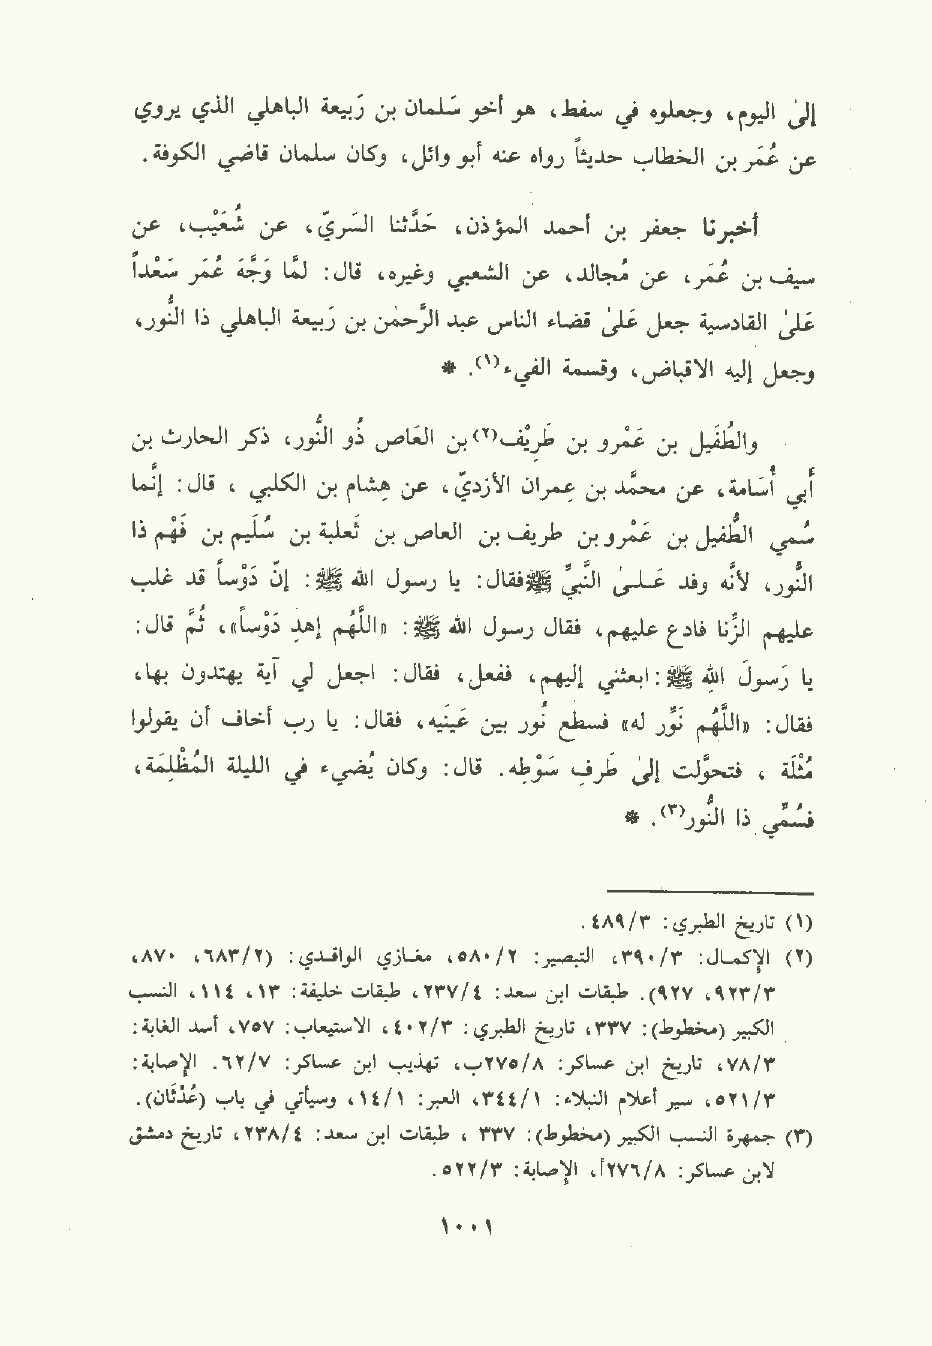 إلىٰ اليوم، وجعلوه في سفط، هو أخو سَلمان بن رَبيعة الباهلي الذي يروي
عن عُمَر بن الخطاب حديثاً رواه عنه أبو وائل، وكان سلمان قاضي الكوفة.
أخبرنا جعفر بن أحمد المؤذن، حَدَّثنا السَّريّ، عن شُعَيْب، عن
سيف بن عُمَر، عن مُجالد، عن الشعبي وغيره، قال: لمَّا وَجَّهَ عُمَر سَعْداً
علىٰ القادسية جعل علىٰ قضاء الناس عبد الرَّحمٰن بن رَبيعة الباهلي ذا النُّور،
وجعل إليه الاقباض، وقسمة الفيء(١). *
والطُفَيل بن عَمْرو بن طَرِيْف(٢) بن العَاص ذُو النُّور، ذكر الحارث بن
أبي أُسَامة، عن محمَّد بن عمران الأزديّ، عن هِشام بن الكلبي ، قال: إنَّما
سُمي الطُّفيل بن عَمْرو بن طريف بن العاص بن ثَعلبة بن سُلَيم بن فَهْم ذا
النُّور، لأنه وفد عـلـىٰ النَّبيِّ ﷺ فقال: يا رسول الله ﷺ: إن دَوْساً قد غلب
عليهم الزِّنا فادع عليهم، فقال رسول الله ﷺ: «اللَّهُم إهدِ دَوْساً»، ثُمَّ قال:
يا رَسولَ اللهِ ﷺ: ابعثني إليهم، ففعل، فقال: اجعل لي آية يهتدون بها،
فقال: «اللَّهُم نَوِّر له» فسطع نُور بين عَينَيه، فقال: يا رب أخاف أن يقولوا
مُثْلَة ، فتحوَّلت إلىٰ طَرف سَوْطِه. قال: وكان يُضيء في الليلة المُظْلِمَة،
فسُمِّي ذا النُّور(٣). *
(١) تاريخ الطبري: ٤٨٩/٣.
(٢) الإكمـال: ٣٩٠/٣، التبصير: ٥٨٠/٢، مغـازي الواقـدي: (٦٨٣/٢، ٨٧٠،
٩٢٣/٣، ٩٢٧). طبقات ابن سعد: ٢٣٧/٤، طبقات خليفة: ١٣، ١١٤، النسب
الكبير (مخطوط): ٣٣٧، تاريخ الطبري: ٤٠٢/٣، الاستيعاب: ٧٥٧، أسد الغابة:
٧٨/٣، تاريخ ابن عساكر: ٢٧٥/٨ب، تهذيب ابن عساكر: ٦٢/٧. الإصابة:
٥٢١/٣، سير أعلام النبلاء: ٣٤٤/١، العبر: ١٤/١، وسيأتي في باب (عُدْثَان).
(٣) جمهرة النسب الكبير (مخطوط): ٣٣٧ ، طبقات ابن سعد: ٢٣٨/٤، تاريخ دمشق
لابن عساكر: ٢٧٦/٨أ، الإصابة: ٥٢٢/٣.
١٠٠١